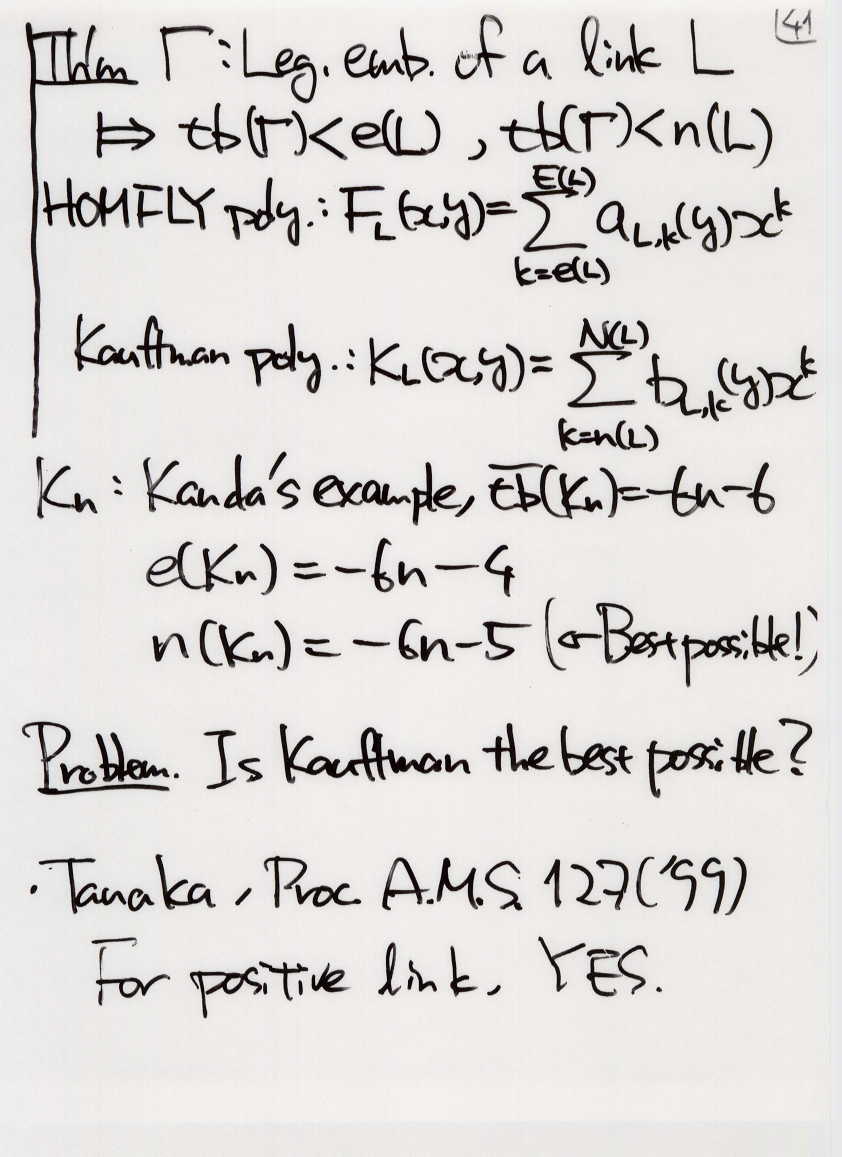 41
Thm Γ: Leg. emb. of a link L
⟹ tb(Γ)<e(L), tb(Γ)<n(L)
HOMFLY poly.: F_L(x,y)=∑_{k=e(L)}^{E(L)} a_{L,k}(y)x^k
Kauffman poly.: K_L(x,y)=∑_{k=n(L)}^{N(L)} b_{L,k}(y)x^k
Kn: Kanda's example, t̅b̅(Kn)=-6n-6
e(Kn)=-6n-4
n(Kn)=-6n-5 (←Best possible!)
Problem. Is Kauffman the best possible?
・Tanaka, Proc. A.M.S. 127('99)
For positive link, YES.